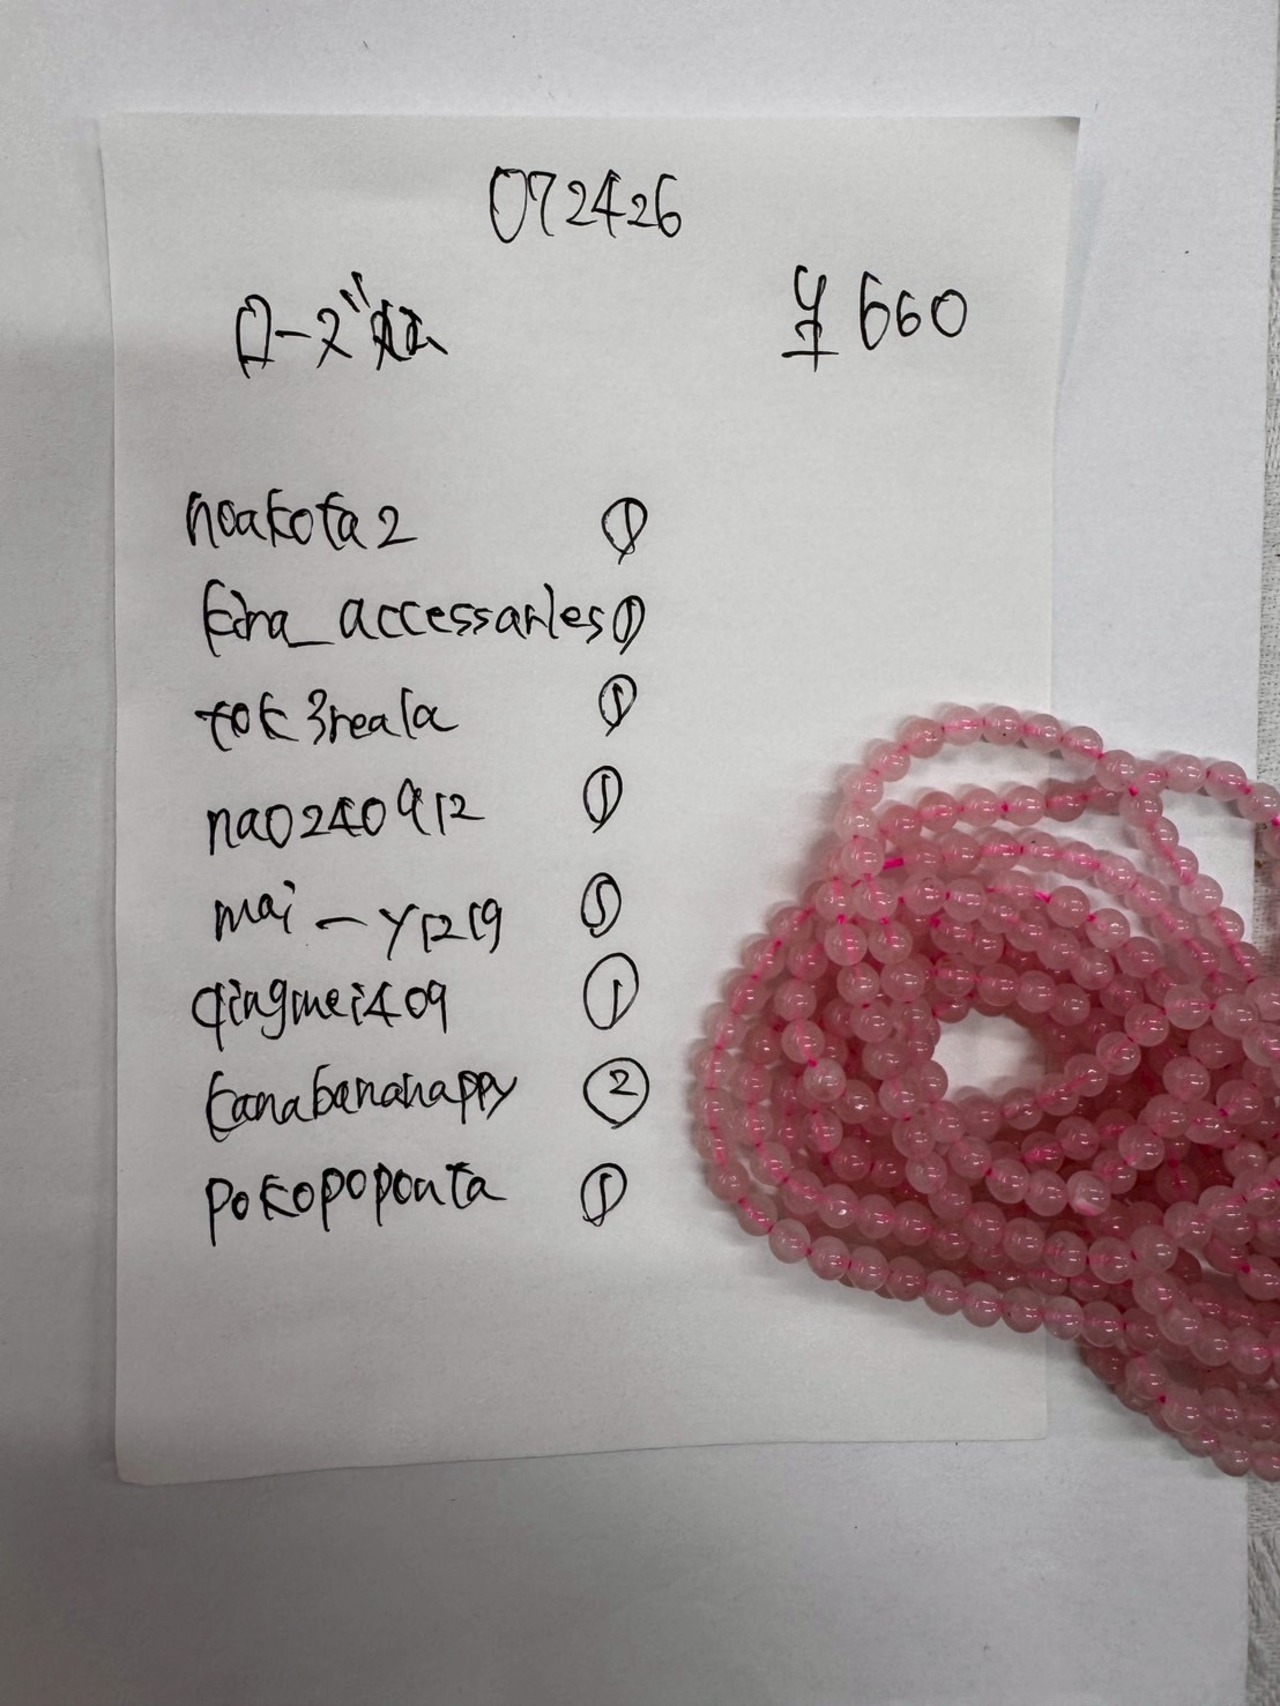 072426
ローズ紅 ¥660
noakota2 ①
kina_accessaries ①
tok3reala ①
nao240912 ①
mai-y1219 ①
qingmei409 ①
kanabanahappy ②
pokopoponta ①